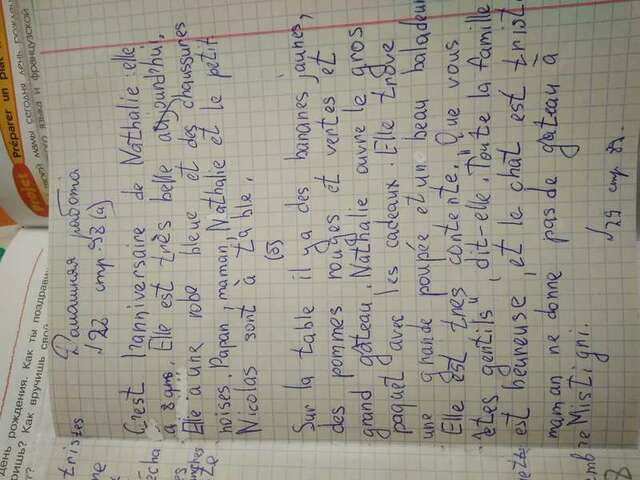 Préparer un plat
Projet
Домашняя работа
№22 стр 98 (а)
C'est l'anniversaire de Nathalie: elle
a 8 ans. Elle est très belle aujourd'hui.
Elle a une robe bleue et des chaussures
noires. Papa, maman, Nathalie et le petit
Nicolas sont à table.
(б)
Sur la table il y a des bananes jaunes,
des pommes rouges et vertes et
grand gâteau. Nathalie ouvre le gros
paquet avec les cadeaux. Elle trouve
une grande poupée et un beau baladeur
Elle est très contente. "Que vous
êtes gentils", dit-elle. Toute la famille
est heureuse, et le chat est triste
maman ne donne pas de gâteau à
Mistigri.
№29 стр.
день рождения. Как ты поздрав
ришь? Как вручишь свой
tristes